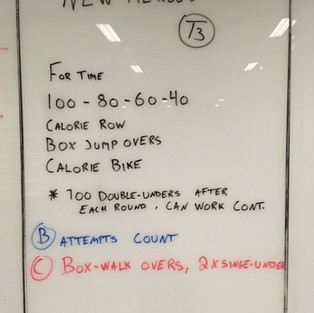 NEW
T3
FOR TIME
100 - 80 - 60 - 40
CALORIE ROW
BOX JUMP OVERS
CALORIE BIKE
* 100 DOUBLE-UNDERS AFTER
EACH ROUND, CAN WORK CONT.
B ATTEMPTS COUNT
C BOX-WALK OVERS, 2X SINGE-UNDER